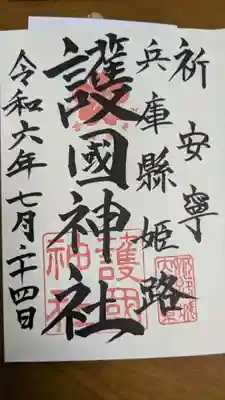 祈 安寧
兵庫縣姫路
護國神社
令和六年七月二十四日
護國
神社